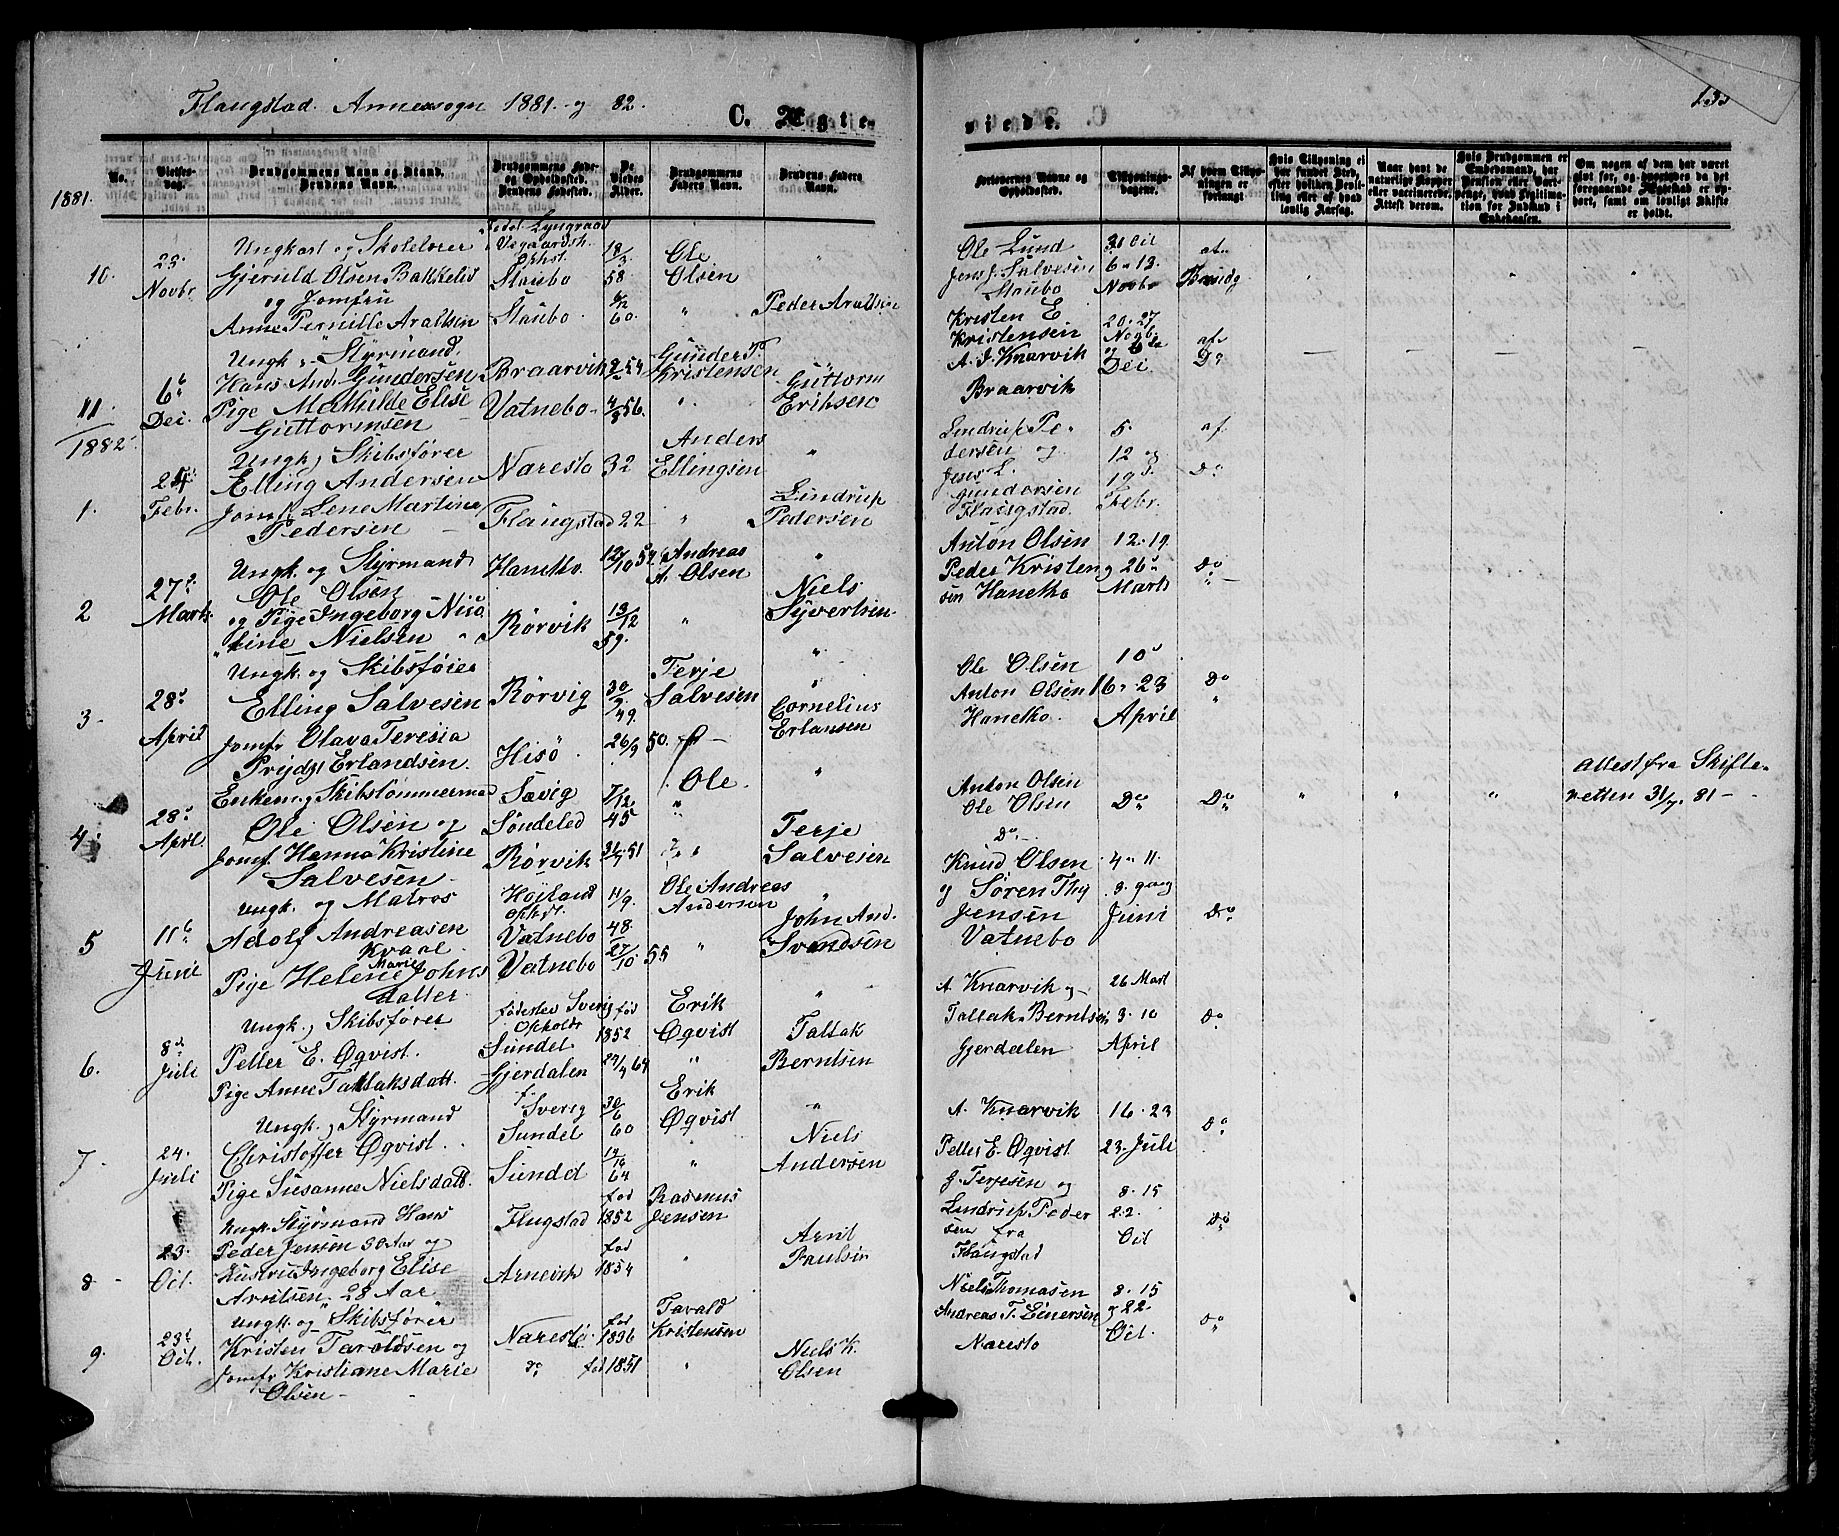 Flangstad Annexsogn 1881 og 82.
C. Vigte-
viede.
C.
1881.
No.
Vielses-dag.
Brudgommens Navn og Stand.
Brudens Navn.
Brudgommens Føde- og Opholdssted.
Brudens Fødested.
De Viedes Alder.
Brudgommens Faders Navn.
Brudens Faders Navn.
Forlovernes Navne og Opholdssted.
Tillysnings-dagene.
Af hvem Tillysningen er forlangt
Hvis Tillysning ei har fundet Sted, efter hvilken Bevilling eller af hvad lovlig Aarsag.
Naar havt de naturlige Kopper eller vaccinerede. Attest derom.
Om nogen af dem har været gift før, og hvorledes da det foregaaende Ægteskab er ophørt, samt om lovligt Skifte er holdt.
10.
23. Novbr
Ungkarl og Skolelærer
Gjeruld Olsen Bakkelid
og Jomfru
Anne Pernille Aralsen
Staubo
Staubo
18/3 58
60.
Ole Olsen
"
Peder Aralsen
Ole Lund
Jens J. Salvesen
Staubo
6 . 13. Novbr
11.
6t Dei.
Ungk. Styrmand.
Hans And. Gundersen
Pige Mathilde Elise
Guttormsen
Braarvik
Vatnebo
56.
Gunder T.
Kristensen
Guttorm
Eriksen
Kristen E
Kristensen
A. J. Knarvik
Braarvik
20. 27 Novb.
Dei
af
Do
1882
1.
24 Febr.
Ungk. Skibsfører
Elling Andersen
Jomf. Lene Martine
Pedersen
Naresto 32
Flangstad 22
Anders
Ellingsen
"
Lindrup
Pedersen
Lindrup Pedersen og
Jens L.
Gundersen
Flangstad.
5.
12 og
19 d.
Febr.
af
Do
2
27d Marts
Ungk. og Styrmand
Ole Olsen
og Pige Ingeborg Nico
line Nielsen
Hanetho
Rørvik
12/10 54
13/12 59.
Andreas
A. Olsen
"
Niels
Syvertsen
Anton Olsen
Peder Kristen
sen Hanetho
12. 19
26d
Marts
Do
3
28d April
Ungk. og Skibsfører
Elling Salvesen
Jomfr Olava Teresia
Erlandsen.
Rørvig
Hisö
49.
26/9 50.
Terje
Salvesen
Cornelius
Erlansen
Ole Olsen
Anton Olsen
Hanetho.
10d
16. 23
April
Do
4.
28d April.
Enkem. Skibstømmermand
Ole Olsen og
Jomf. Hanna Kristine
Salvesen
Sævig
Söndeled
Rørvik
45
51
Ole.
"
Terje
Salvesen
Anton Olsen
Ole Olsen
Do
Do
Do
"
"
"
Attest fra Skifte-
retten 31/7. 81 -
5
11t Juni
Ungk. og Matros
Adolf Andreasen
Kvaal
Pige Helene Marie Johns
datter.
Højland
Vatnebo
Vatnebo
11/9. 48.
27/10 55
Ole Andreas
Anderson
"
John And.
Svendsen
Knud Olsen
og Søren Thy
Jensen
Vatnebo
4. 11.
Juni
Do
6.
8d Juli
Ungk. Skibsfører
Petter E. Øqvist.
Pige Anne Tallaksdatt.
fødested Sverig
Opholdt
Sundet
Gjerdalen
fød 1852
64
Erik
Øqvist
"
Tallak
Berntsen
A. Knarvik og
Tallak Berntsen
Gjerdalen
26 Mart
3. 10
April
Do
7
24. Juli
Ungk. Styrmand
Christoffer Øqvist.
Pige Susanne Nielsdatt.
f. Sverig
Sundet
Sundet
30/6 60
64
Erik
Øqvist
"
Niels
Andersen
A. Knarvik
Petter E. Øqvist
16. 23
23. Juli
Do
8
23. Oct.
Ungk. Styrmand Hans
Peder Jensen 30 Aar og
Hustru Ingeborg Elise
Arntsen. 28 Aar
Flugstad
Arnevik
fød 1852
fød 1854
Rasmus
Jensen
"
Arnt
Paulsin
G. Terjesen og
Lindrup Peder
sen fra
Flangstad
8. 15
22.
Oct
Do
9.
23d Oct.
Ungk. og Skibsfører
Kristen Taraldsen og
Jomfr Kristiane Marie
Olsen
Narestø
do
fød 1836
fød 1851
Tarald
Kristensen
"
Niels K.
Olsen
Niels Thomasen
Andreas T. Einersen
Naresto
8. 15
22.
Oct.
Do